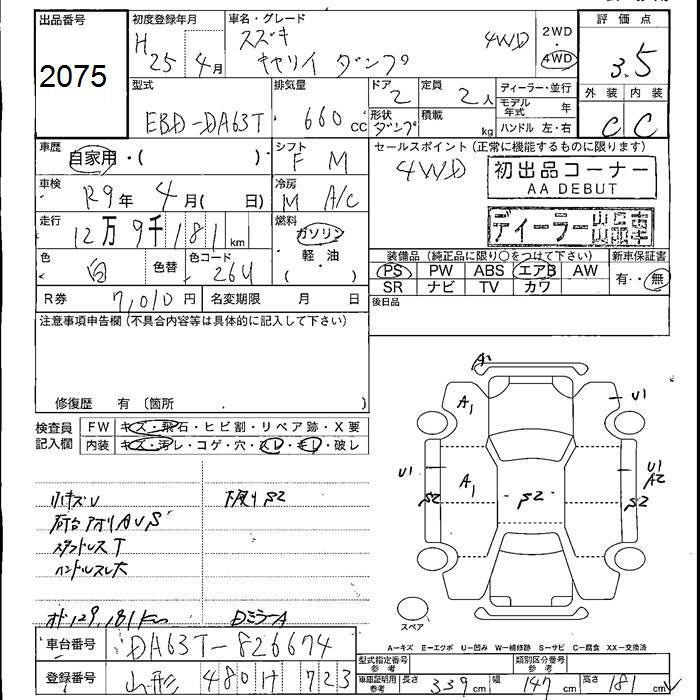 出品番号
2075
初度登録年月
H25年4月
車名・グレード
スズキ
キャリイ ダンプ 4WD
2WD
4WD
評価点
3.5
外装 内装
C C
型式
EBD-DA63T
排気量
660cc
ドア
2
定員
2人
形状
ダンプ
積載
kg
ディーラー・並行
モデル年式 年
ハンドル 左・右
車歴
自家用・( )・
シフト
F M
セールスポイント (正常に機能するものに限ります)
4WD
初出品コーナー
AA DEBUT
ディーラー
車検
R9年 4月( 日)
冷房
M A/C
走行
12万9千181km
燃料
ガソリン
・
軽・油
色
白
色替
色コード
26U
装備品 (純正品に限り○をつけて下さい)
PS PW ABS エアB AW
SR ナビ TV カワ
新車保証書
有・・無
R券 7,010円
名変期限 月 日
後日品
注意事項申告欄 (不具合内容等は具体的に記入して下さい)
修復歴 有 〔箇所 〕
検査員記入欄
FW キズ・飛石・ヒビ割・リペア跡・X要
内装 キズ・汚レ・コゲ・穴・スレ・キレ・破レ
小キズU
下廻りS2
荷台アオリAUS
スタッドレスT
ハンドルスレ大
オド129,181km
DミラーA
A1
A1
U1
U1
A1
S2
S2
U1
A2
S2
スペア
車台番号
DA63T-826674
登録番号
山形 480 け 723
A-キズ E-エクボ U-凹み W-補修跡 S-サビ C-腐食 XX-交換済
型式指定番号参考
類別区分番号参考
車庫証明用参考 長さ 339cm 幅 147cm 高さ 181cm